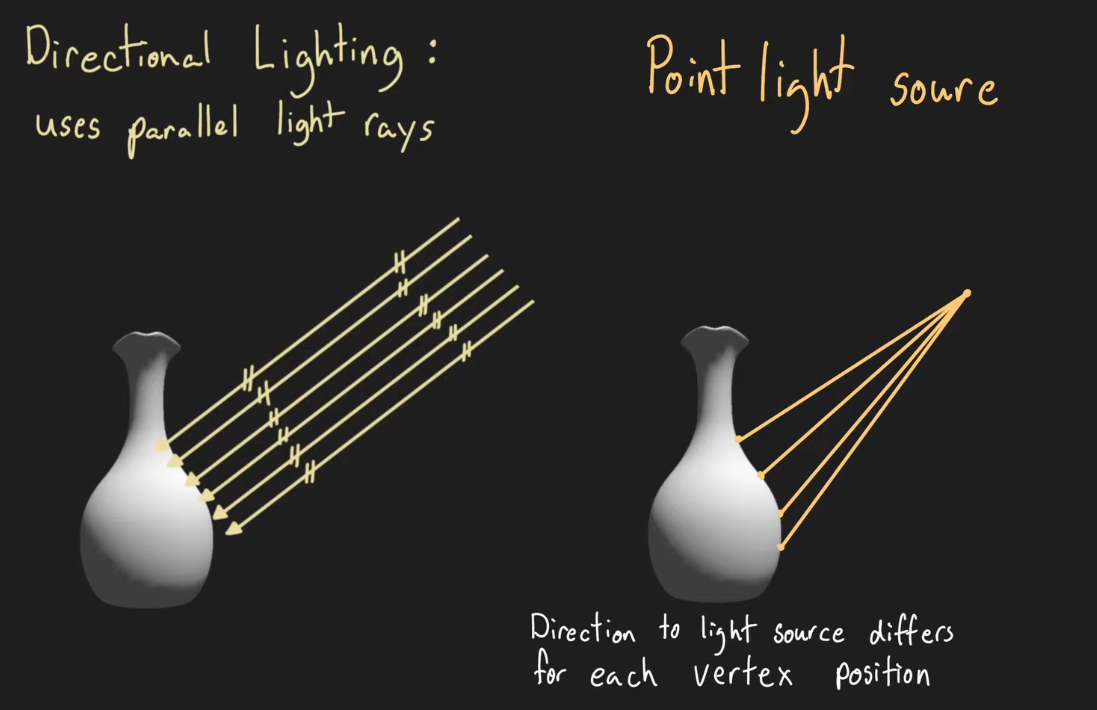 Directional Lighting:
uses parallel light rays
Point light soure
Direction to light source differs
for each vertex position